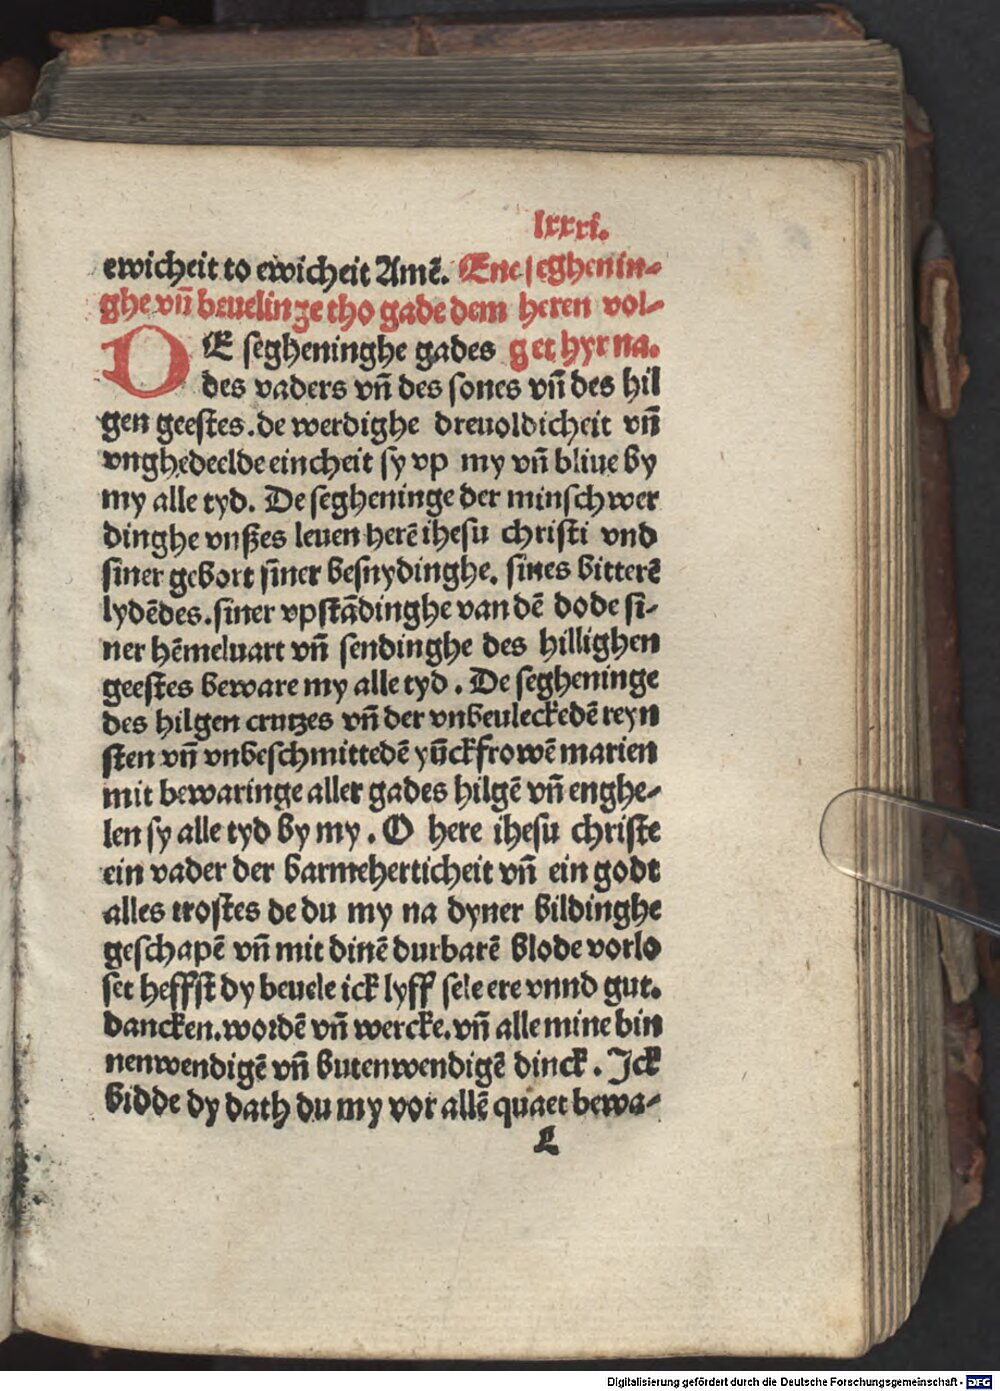 lxxxi.
ewicheit to ewicheit Amē. Ene seghenin-
ghe vn̄ beuelinge tho gade dem heren vol-
DE segheninghe gades get hyr na.
des vaders vn̄ des sones vn̄ des hil
gen geestes. de werdighe dreuoldicheit vn̄
vnghedeelde eincheit sy vp my vn̄ bliue by
my alle tyd. De segheninge der minschwer
dinghe vnßes leuen herē ihesu christi vnd
siner gebort siner besnydinghe. sines bitterē
lydēdes. siner vpstādinghe van dē dode si-
ner hēmeluart vn̄ sendinghe des hillighen
geestes beware my alle tyd. De segheninge
des hilgen crutzes vn̄ der vnbeuleckedē reyn
sten vn̄ vnbeschmittedē yūckfrowē marien
mit bewaringe aller gades hilgē vn̄ enghe-
len sy alle tyd by my. O here ihesu christe
ein vader der barmeherticheit vn̄ ein godt
alles trostes de du my na dyner bildinghe
geschapē vn̄ mit dinē durbarē blode vorlo
set heffst dy beuele ick lyff sele ere vnnd gut.
dancken. wordē vn̄ wercke. vn̄ alle mine bin
nenwendigē vn̄ butenwendigē dinck. Ick
bidde dy dath du my vor allē quaet bewa-
L
Digitalisierung gefördert durch die Deutsche Forschungsgemeinschaft - DFG